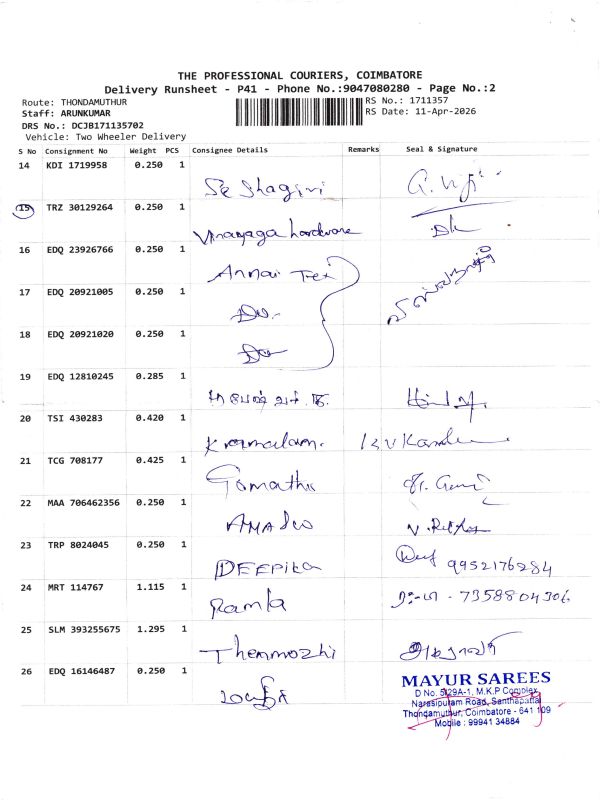 THE PROFESSIONAL COURIERS, COIMBATORE
Delivery Runsheet - P41 - Phone No.:9047080280 - Page No.:2
Route: THONDAMUTHUR
RS No.: 1711357
Staff: ARUNKUMAR
RS Date: 11-Apr-2026
DRS No.: DCJB171135702
Vehicle: Two Wheeler Delivery
S No Consignment No Weight PCS Consignee Details Remarks Seal & Signature
14 KDI 1719958 0.250 1
15 TRZ 30129264 0.250 1
Vinayaga hardware
16 EDQ 23926766 0.250 1
Annai Tex
17 EDQ 20921005 0.250 1
Do
18 EDQ 20921020 0.250 1
Do
19 EDQ 12810245 0.285 1
20 TSI 430283 0.420 1
21 TCG 708177 0.425 1
Gomathi
22 MAA 706462356 0.250 1
23 TRP 8024045 0.250 1
DEEPika 9952176284
24 MRT 114767 1.115 1
Ramla 7358804306
25 SLM 393255675 1.295 1
Thenmozhi
26 EDQ 16146487 0.250 1
MAYUR SAREES
D No. 5/29A-1, M.K.P Complex,
Narasipuram Road, Santhapattai
Thondamuthur, Coimbatore - 641 109
Mobile : 99941 34884